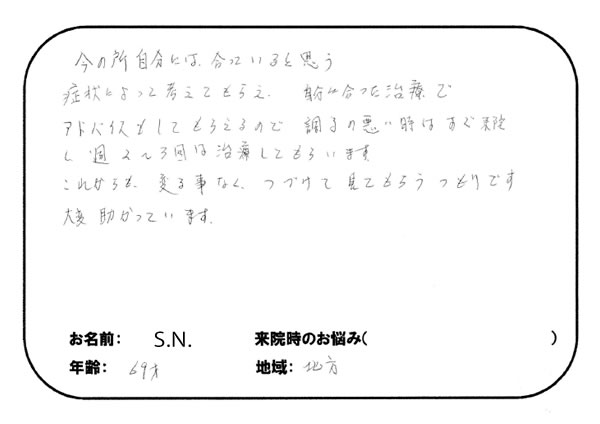 今の所自分には、合っていると思う
症状によって考えてもらえ、自分に合った治療で
アドバイスもしてもらえるので 調子の悪い時はすぐ来院
し 週2〜3回は治療してもらいます
これからも、変る事なく、つづけて 見てもらうつもりです
大変 助かっています。
お名前： S.N. 来院時のお悩み( )
年齢： 69才 地域： 北方